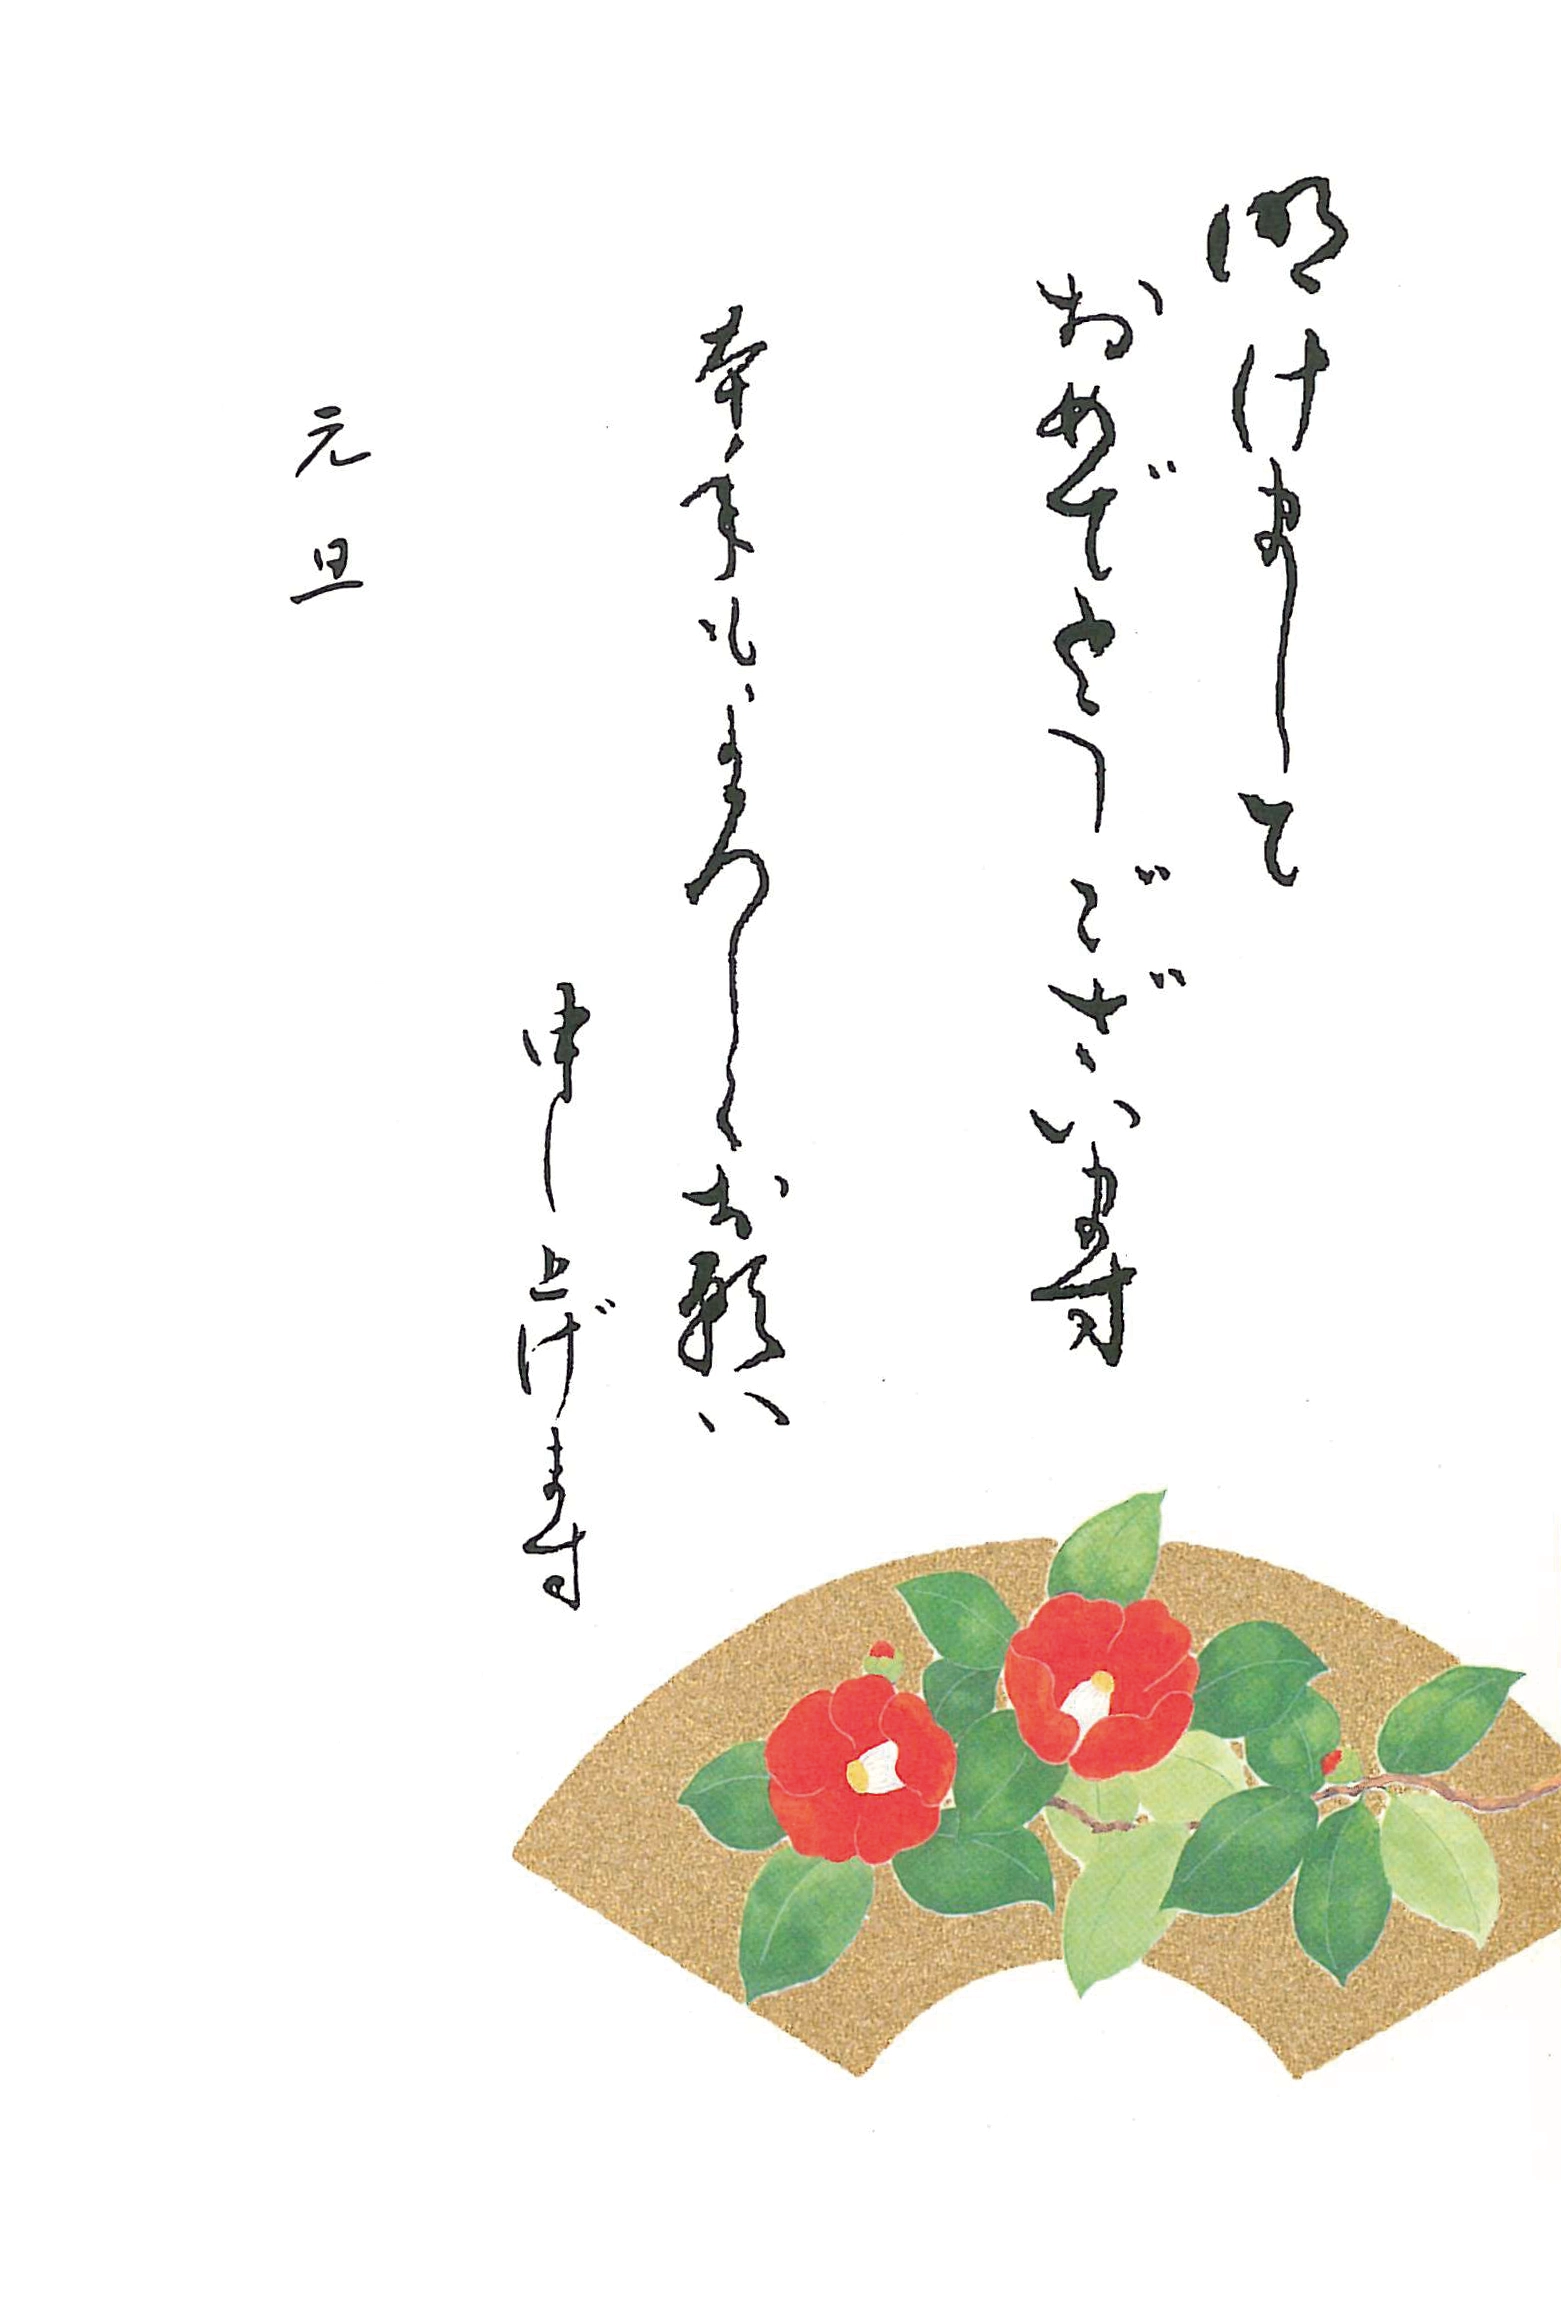 明けまして
おめでとうございます
本年もよろしくお願い
申し上げます
元旦